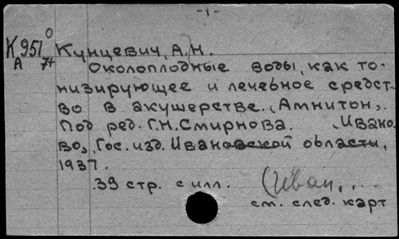 -1-
К951 0
А 7+
Кунцевич, А.Н.
Околоплодные воды, как то-
низирующее и лечебное средст-
во в акушерстве. „Амнитон".
Под ред. Г.Н. Смирнова. Ивано-
во, Гос. изд. Ивановской области,
1937.
39 стр. с илл. (Иван...
см. след. карт